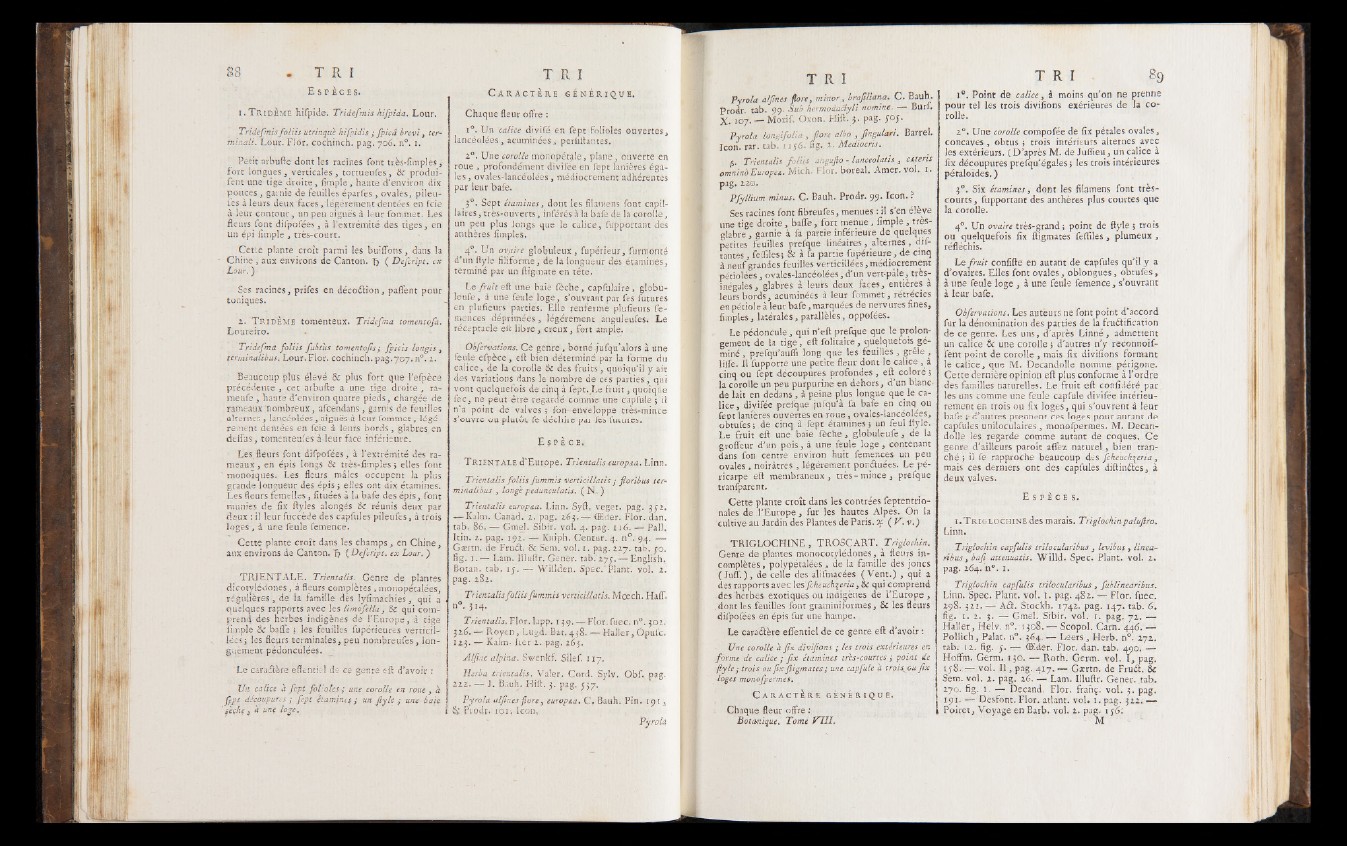 88 T R I
ESPÈCES.
1. TRIDÈME hiſpide. Trideſmis hiſpida. Lour.
Trideſmis foliis utrinquè hiſpidis ; ſpicâ brevi, ter-
minali. Lour. Flor. cochinch. pag. 706. n°. 1.
Petit arbuſte dont les racines ſont très-ſimples,
fort longues, verticales, tortueuſes, & produi-
ſent une tige droite, ſimple, haute d'environ dix
pouces, garnie de feuilles éparſes, ovales, pileu-
ſes à leurs deux faces, légérement dentées en ſcie
à leur contour, un peu aiguës à leur ſommet. Les
fleurs ſont diſpoſées, à l'extrémité des tiges, en
un épi ſimple, très-court.
Cette plante croît parmi les buiſſons, dans la
Chine, aux environs de Canton. ♄ (Deſcript. ex
Lour.)
Ses racines, priſes en décoction, paſſent pour
toniques.
2. TRIDÈME tomenteux. Trideſma tomentoſa.
Loureiro.
Trideſma foliis ſubtùs tomentoſis ; ſpicis longis,
terminalibus. Lour. Flor. cochinch. pag. 707. n°. 2.
Beaucoup plus élevé & plus fort que l'eſpèce
précédente, cet arbuſte a une tige droite, ra-
meuſe, haute d'environ quatre pieds, chargée de
rameaux nombreux, aſcendans, garnis de feuilles
alternes, lancéolées, aiguës à leur ſommet, légé-
rement dentées en ſcie à leurs bords, glabres en
deſſus, tomenteuſes à leur face inférieure.
Les fleurs ſont diſpoſées, à l'extrémité des ra-
meaux, en épis longs & très-ſimples ; elles ſont
monoïques. Les fleurs mâles occupent la plus
grande longueur des épis ; elles ont dix étamines.
Les fleurs femelles, ſituées à la baſe des épis, ſont
munies de ſix ſtyles alongés & réunis deux par
deux : il leur ſuccède des capſules pileuſes, à trois
loges, à une ſeule ſemence.
Cette plante croît dans les champs, en Chine,
aux environs de Canton. ♄ (Deſcript. ex Lour.)
TRIENTALE. Trientalis. Genre de plantes
dicotylédones, à fleurs complètes, monopétalées,
régulières, de la famille des lyſimachies, qui a
quelques rapports avec les limoſella, & qui com-
prend des herbes indigènes de l'Europe, à tige
ſimple & baſſe ; les feuilles ſupérieures verticil-
lées ; les fleurs terminales, peu nombreuſes, lon-
guement pédonculées.
Le caractère eſſentiel de ce genre eſt d'avoir :
Un calice à ſept folioles ; une corolle en roue, à
ſept découpures ; ſept étamines ; un ſtyle ; une baie
ſèche, à une loge.
T R I
CARACTÈRE GÉNÉRIQUE.
Chaque fleur offre :
1°. Un calice diviſé en ſept folioles ouvertes,
lancéolées, acuminées, perſiſtantes.
2°. Une corolle monopétale, plane, ouverte en
roue, profondément diviſée en ſept lanières éga-
les, ovales-lancéolées, médiocrement adhérentes
par leur baſe.
3°. Sept étamines, dont les filamens ſont capil-
laires, très-ouverts, inférés à la baſe de la corolle,
un peu plus longs que le calice, ſupportant des
anthères ſimples.
4°. Un ovaire globuleux, ſupérieur, ſurmonté
d'un ſtyle filiforme, de la longueur des étamines,
terminé par un ſtigmate en tête.
Le fruit eſt une baie ſèche, capſulaire, globu-
leuſe, à une ſeule loge, s'ouvrant par ſes ſutures
en pluſieurs parties. Elle renferme pluſieurs ſe-
mences déprimées, légérement anguleuſes. Le
réceptacle eſt libre, creux, fort ample.
Obſervations. Ce genre, borné juſqu'alors à une
ſeule eſpèce, eſt bien déterminé par la forme du
calice, de la corolle & des fruits, quoiqu'il y ait
des variations dans le nombre de ces parties, qui
vont quelquefois de cinq à ſept. Le fruit, quoique
ſec, ne peut être regardé comme une capſule ; il
n'a point de valves ; ſon enveloppe très-mince
s'ouvre ou plutôt ſe déchire par les ſutures.
ESPÈCE.
TRIENTALE d'Europe. Trientalis europæa. Linn.
Trientalis foliis ſummis verticillatis ; floribus ter-
minalibus, longè pedunculatis. (N.)
Trientalis europæa. Linn. Syſt. veget. pag. 352.
— Kalm. Canad. 2. pag. 263. — Œder. Flor. dan.
tab. 86. — Gmel. Sibir. vol. 4. pag. 116. — Pall.
Itin. 2. pag. 192. — Kniph. Centur. 4. n°. 94. —
Gærtn. de Fruct. & Sem. vol. 1. pag. 227. tab. 50.
fig. 1. — Lam. Illuſtr. Gener. tab. 275. — English.
Botan. tab. 15. — Willden. Spec. Plant. vol. 2.
pag. 282.
Trientalis foliis ſummis verticillatis. Mœch. Haſſ.
n°. 314.
Trientalis. Flor. lapp. 139. — Flor. ſuec. n°. 302.
326. — Royen, Lugd. Bat. 418. — Haller, Opuſc.
123. — Kalm. Iter 2. pag. 263.
Alſine alpina. Swenkf. Sileſ. 117.
Herba trientalis. Valer. Cord. Sylv. Obſ. pag.
222. — J. Bauh. Hiſt. 3. pag. 537.
Pyrola alſines flore, europæa. C. Bauh. Pin. 191,
& Prodr. 102. Icon.
Pyrola
T R I
Pyrola alſines flore, minor, braſiliana. C. Bauh.
Prodr. tab. 99. Sub hermodactyli nomine. — Burſ.
X. 107. — Moriſ. Oxon. Hiſt. 3. pag. 505.
Pyrola longifolia, flore albo, ſingulari. Barrel.
Icon. rar. tab. 1156. fig. 2. Mediocris.
β. Trientalis foliis anguſto-lanceolatis, cæteris
omninò Europææ. Mich. Flor. boreal. Amer. vol. 1.
pag. 220.
Pſyllium minus. C. Bauh. Prodr. 99. Icon. ?
Ses racines ſont fibreuſes, menues : il s'en élève
une tige droite, baſſe, fort menue, ſimple, très-
glabre, garnie à ſa partie inférieure de quelques
petites feuilles preſque linéaires, alternes, diſ-
tantes, ſeſſiles ; & à ſa partie ſupérieure, de cinq
à neuf grandes feuilles verticillées, médiocrement
pétiolées, ovales-lancéolées, d'un vert-pâle, très-
inégales, glabres à leurs deux faces, entières à
leurs bords, acuminées à leur ſommet, rétrécies
en pétiole à leur baſe, marquées de nervures fines,
ſimples, latérales, parallèles, oppoſées.
Le pédoncule, qui n'eſt preſque que le prolon-
gement de la tige, eſt ſolitaire, quelquefois gé-
miné, preſqu'auſſi long que les feuilles, grêle,
liſſe. Il ſupporte une petite fleur dont le calice, à
cinq ou ſept découpures profondes, eſt coloré ;
la corolle un peu purpurine en dehors, d'un blanc-
de lait en dedans, à peine plus longue que le ca-
lice, diviſée preſque juſqu'à ſa baſe en cinq ou
ſept lanières ouvertes en roue, ovales-lancéolées,
obtuſes ; de cinq à ſept étamines ; un ſeul ſtyle.
Le fruit eſt une baie ſèche, globuleuſe, de la
groſſeur d'un pois, à une ſeule loge, contenant
dans ſon centre environ huit ſemences un peu
ovales, noirâtres, légérement ponctuées. Le pé-
ricarpe eſt membraneux, très-mince, preſque
tranſparent.
Cette plante croît dans les contrées ſeptentrio-
nales de l'Europe, ſur les hautes Alpes. On la
cultive au Jardin des Plantes de Paris. ♃ (V. v.)
TRIGLOCHINE, TROSCART. Triglochin.
Genre de plantes monocotylédones, à fleurs in-
complètes, polypétalées, de la famille des joncs
(Juſſ.), de celle des aliſmacées (Vent.), qui a
des rapports avec les ſcheuchzeria, & qui comprend
des herbes exotiques ou indigènes de l'Europe,
dont les feuilles ſont graminiformes, & les fleurs
diſpoſées en épis ſur une hampe.
Le caractère eſſentiel de ce genre eſt d'avoir :
Une corolle à ſix diviſions ; les trois extérieures en
forme de calice ; ſix étamines très-courtes ; point de
ſtyle ; trois ou ſix ſtigmates ; une capſule à trois ou ſix
loges monoſpermes.
CARACTÈRE GÉNÉRIQUE.
Chaque fleur offre :
Botanique. Tome VIII.
T R I 89
1°. Point de calice, à moins qu'on ne prenne
pour tel les trois diviſions extérieures de la co-
rolle.
2°. Une corolle compoſée de ſix pétales ovales,
concaves, obtus ; trois intérieurs alternes avec
les extérieurs. (D'après M. de Juſſieu, un calice à
ſix découpures preſqu'égales ; les trois intérieures
pétaloïdes.)
3°. Six étamines, dont les filamens ſont très-
courts, ſupportant des anthères plus courtes que
la corolle.
4°. Un ovaire très-grand ; point de ſtyle ; trois
ou quelquefois ſix ſtigmates ſeſſiles, plumeux,
réfléchis.
Le fruit conſiſte en autant de capſules qu'il y a
d'ovaires. Elles ſont ovales, oblongues, obtuſes,
à une ſeule loge, à une ſeule ſemence, s'ouvrant
à leur baſe.
Obſervations. Les auteurs ne ſont point d'accord
ſur la dénomination des parties de la fructification
de ce genre. Les uns, d'après Linné, admettent
un calice & une corolle ; d'autres n'y reconnoiſ-
ſent point de corolle, mais ſix diviſions formant
le calice, que M. Decandolle nomme périgone.
Cette dernière opinion eſt plus conforme à l'ordre
des familles naturelles. Le fruit eſt conſidéré par
les uns comme une ſeule capſule diviſée intérieu-
rement en trois ou ſix loges, qui s'ouvrent à leur
baſe ; d'autres prennent ces loges pour autant de
capſules uniloculaires, monoſpermes. M. Decan-
dolle les regarde comme autant de coques. Ce
genre d'ailleurs paroît aſſez naturel, bien tran-
ché ; il ſe rapproche beaucoup des ſcheuchzeria,
mais ces derniers ont des capſules diſtinctes, à
deux valves.
ESPÈCES.
1. TRIGLOCHINE des marais. Triglochin paluſtre.
Linn.
Triglochin capſulis trilocularibus, levibus, linea-
ribus, baſi attenuatis. Willd. Spec. Plant. vol. 2.
pag. 264. n°. 1.
Triglochin capſulis trilocularibus, ſublinearibus.
Linn. Spec. Plant. vol. 1. pag. 482. — Flor. ſuec.
298. 321. — Act. Stockh. 1742. pag. 147. tab. 6.
fig. 1. 2. 3. — Gmel. Sibir. vol. 1. pag. 72. —
Haller, Helv. n°. 1308. — Scopol. Carn. 446. —
Pollich, Palat. n°. 364. — Leers, Herb. n°. 272.
tab. 12. fig. 5. — Œder. Flor. dan. tab. 490. —
Hoffm. Germ. 130. — Roth. Germ. vol. I, pag.
158. — vol. II, pag. 417. — Gærtn. de Fruct. &
Sem. vol. 2. pag. 26. — Lam. Illuſtr. Gener. tab.
270. fig. 1. — Decand. Flor. franç. vol. 3. pag.
191. — Desfont. Flor. atlant. vol. 1. pag. 322. —
Poiret, Voyage en Barb. vol. 2. pag. 156.
M